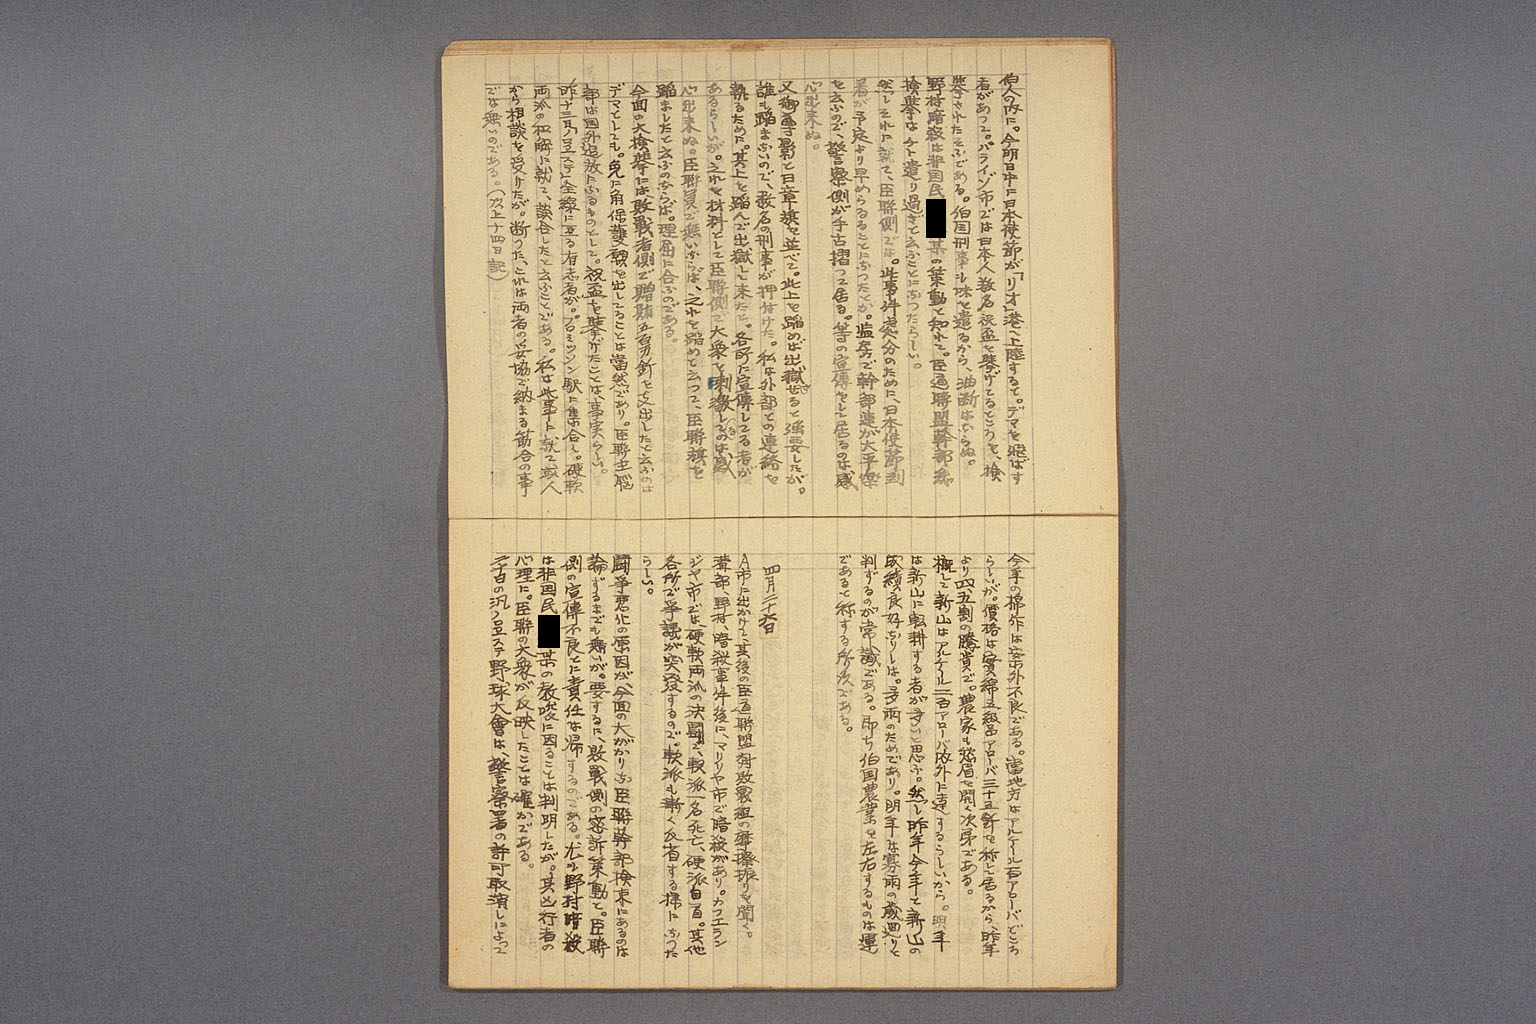 伯人の内に。今明日中に日本使節が「リオ」港へ上陸すると。デマを飛ばす
者があつて。パライゾ市では日本人数名祝盃を挙げてるところを、検
挙されたそふである。伯国刑事も珠を遣るから、油断はならぬ。
野村暗殺は非国民 某の策動と知れて。臣道聯盟幹部総
検挙は今ト遣り過ぎと云ふことになつたらしい。
然しそれに就て、臣聯側では。此事件処分のために、日本使節到
着が予定より早めらるることになつたとか。監房で幹部連が大平楽
を云ふので、警察側が手古摺つて居る。等の宣傳をして居るのは感
心出来ぬ。
又御尊影と日章旗を並べて。此上を踏めば出獄させると強要したが。
誰も踏まないので、数名の刑事が押付けた。私は外部との連絡を
執るために。其上を踏んで出獄して来たと。各所に宣傳してる者が
あるらしいが。之れを材料として臣聯側で大衆を刺激してるのは感
心出来ぬ。臣聯員で無いならば、之れを踏めと云つて、臣聯旗を
踏ましたと云ふのならば。理屈に合ふのである。
今回の大検挙には敗戦者側で贈賄五百万針を支出したと云ふのは
デマとしても。兎に角保護願を出してることは當然であり。臣聯主脳
部は国外追放になるものとして。祝盃を挙げたことは、事実らしい。
昨十三日ノロエステ全線に亘る有志者が。プロミツソン駅に集合し。硬軟
両派の和解に就て、談合したと云ふことである。私は此事に就て数人
から相談を受けたが。断つた、これは両者の妥協で納まる筋合の事
では無いのである。(以上十四日記)
今年の棉作は案外不良である。當地方はアルケール百アローバどころ
らしいが。價格は實綿五級品アローバ三十五針を称して居るから、昨年
より四、五割の騰貴で。農家も愁眉を開く次第である。
概して新山はアルケール二百アローバ内外に達するらしいから。明年
は新山に転耕する者が多いと思ふ。然し昨年今年と新山の
成績良好なりしは。多雨のためであり。明年は寡雨の歳廻りと
判ずるのが常識である。即ち伯国農業を左右するものは運
であると称する所以である。
四月二十六日
A市に出かけて、其後の臣道聯盟対敗戦組の摩擦振りを聞く。
溝部、野村、暗殺事件後に、マリリヤ市で暗殺があり。カフエラン
ジヤ市では、硬軟両派の決闘で、軟派一名死亡、硬派自首。其他
各所で爭議が突発するので。軟派も漸く反省する様になつた
らしい。
闘爭悪化の原因が、今回の大がかりな臣聯幹部検束にあるのは
論ずるまでも無いが。要するに、敗戦側の密訴策動と。臣聯
側の宣傳不良とに責任は帰するのである。尤も野村暗殺
は非国民 某の教唆に因ることは判明したが。其凶行者の
心理に。臣聯の大衆が反映したことは確かである。
二十日の汎ノロエステ野球大會は、警察署の許可取消しによつて